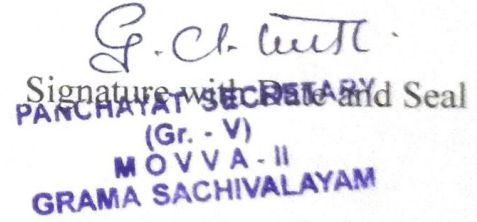 Signature with Date and Seal
PANCHAYAT SECRETARY
(Gr. - V)
MOVVA - II
GRAMA SACHIVALAYAM